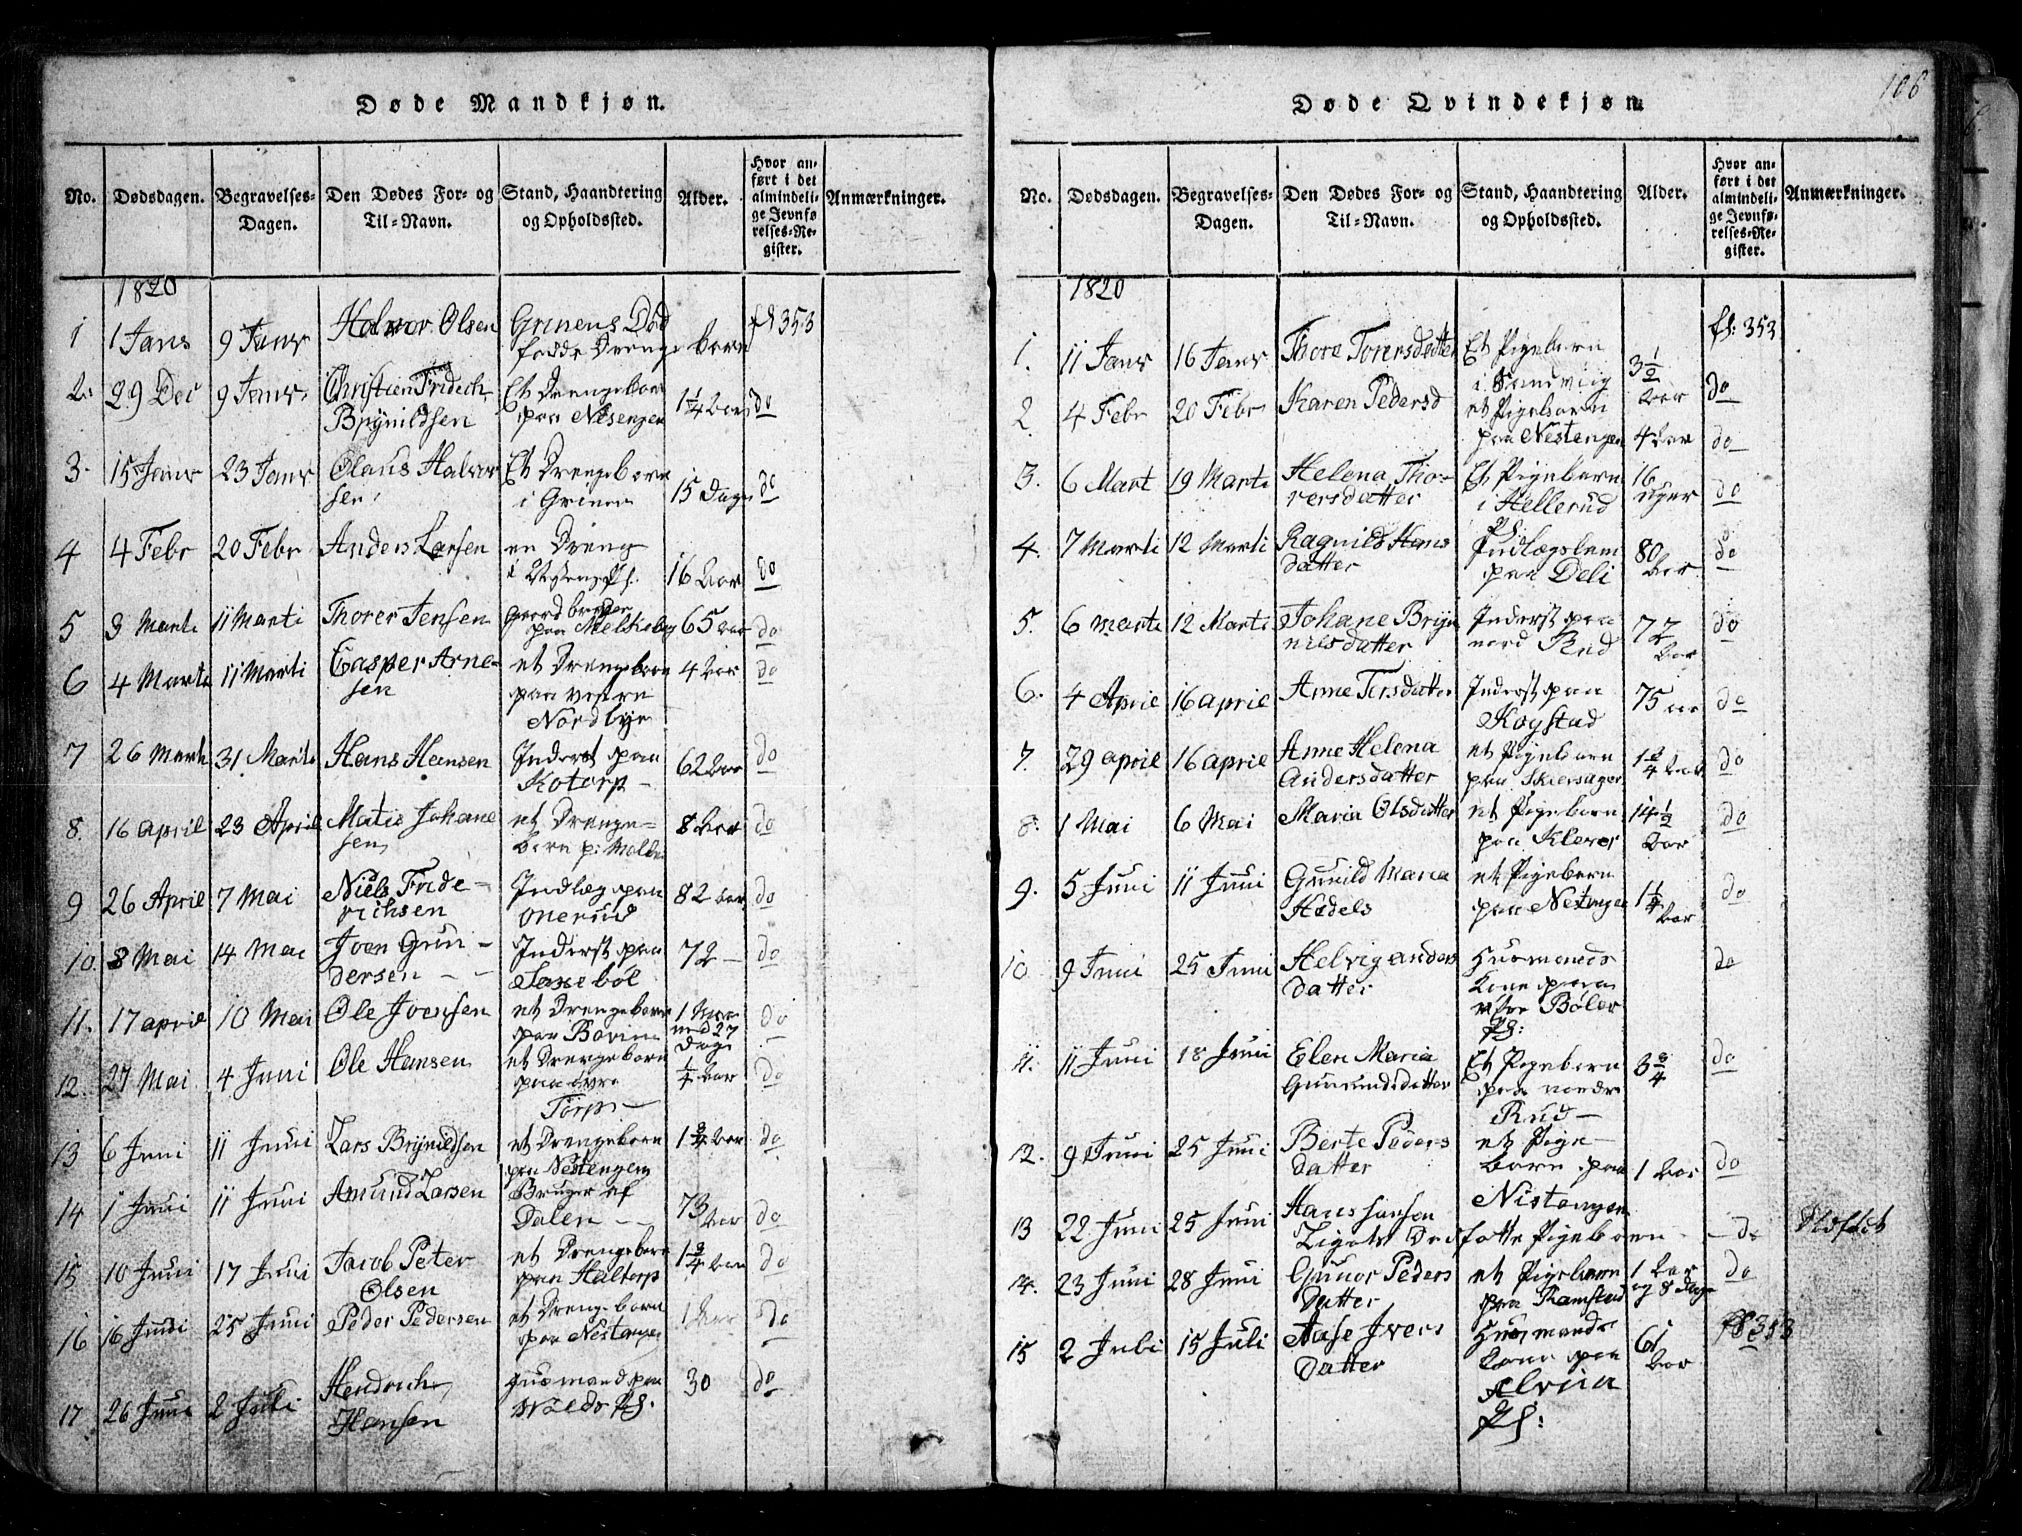 Døde Mandkjøn.
No.
Dødsdagen.
Begravelses-
Dagen.
Den Dødes For- og
Til-Navn.
Stand, Haandtering
og Opholdssted.
Alder.
Hvor an-
ført i det
almindeli-
ge Jevnfø
relses-Re-
gister.
Anmærkninger.
1820
1 1 Janv 9 Janv Halvor Olsen Grinens Død
fødde Dreng barn fl 353
2. 29 Dec 9 Janv. Christien Fridech
Brynildsen
Et Drengebarn
paa Nesengen 1 1/4 Aar do
3. 15 Janv 23 Janv Olaus Halvor
sen
Et Drengebarn
i Grinen 15 Dage do
4 4 Febr 20 Febr Anders Larsen en Dreng
i 16 Aar do
5 3 Marti 11 Marti Thorer Jensen
paa Melleby 65 aar do
6 4 Marti 11 Marti Casper Arne-
sen
et Drengebarn
paa vestre
Nordbye 4 Aar do
7 26 Marti 31 Marti Hans Hansen Inderst paa
Kotorp 62 Aar do
8. 16 april 23 April Matis Johane
sen
et Drenge=
barn p: 8 Aar do
9 26 April 7 Mai Niels Fride-
richsen
Indlæg paa
Onerud 82 aar do
10. 8 Mai 14 Mai Joen Gun-
dersen - -
Inderst paa
Sanebøl 72 - do
11. 17 april 10 Mai Ole Joensen et Drengebarn
paa Bovim 1 Maa
ned 27
Dage do
12. 27 Mai 4 Juni Ole Hansen et Drengebarn
paa øvre
Torp - 1/4 Aar do
13 6 Juni 11 Juni Lars Brynildsen et Drengebarn
paa Nestengen 1 3/4 Aar do
14 1 Juni 11 Juni Amund Larsen Bruger af
Dalen - - 73
Aar do
15 10 Juni 17 Juni Jacob Peter
Olsen
et Drengebarn
paa Haltorp 1 3/4 Aar do
16 16 Juni 25 Juni Peder Pedersen et Drengebarn
paa Nestengen 1 Aar do
17 26 Juni 2 Juli Hendrich
Hansen
Husmand paa
30 do
106
Døde Qvindekjøn
No.
Dødsdagen.
Begravelses-
Dagen.
Den Dødes For- og
Til-Navn.
Stand, Haandtering
og Opholdssted.
Alder.
Hvor an-
ført i det
almindeli-
ge Jevnfø-
relses-Re-
gister.
Anmærkninger.
1820
1. 11 Janv 16 Janv Thore Torersdatter Et Pigebarn
i Sandviig 3 1/2
Aar fl: 353
2. 4 Febr 20 Febr Karen Pedersd et Pigebarn
paa Nestengen 4 Aar do
do
3. 6 Mart 19 Marti Helena Tho-
rersdatter
Et Pigebarn
i Hellerud 16
Uger do
4. 7 Marti 12 Marti Ragnild Hans
datter
Indlægslem
paa Deli 80
Aar do
5. 6 Marti 12 Marti Johane Bryn
nilsdatter
Inderst paa
nord Rud 72
Aar do
6. 4 April 16 april Anne Tersdatter Inderst paa
Kogstad 75 aar do
7. 29 april 16 april Anne Helena
Andersdatter
et Pigebarn
paa Skiersager 1 3/4 Aar do
8. 1 Mai 6 Mai Maria Olsdatter et Pigebarn
paa Klever 14 1/2
Aar do
9. 5 Juni 11 Juni Gunild Maria
Hedels
et Pigebarn
paa Nestengen 1 1/4
Aar do
10. 9 Juni 25 Juni Helvig anders
datter
Husmands
kone paa
Bøler
Ps: do
11. 11 Juni 18 Juni Elen Maria
Gunundsdatter
Et Pigebarn
paa nordre
Rud - 3 3/4 do
12. 9 Juni 25 Juni Berte Peders
datter
et Pige-
barn paa
Nistengen 1 Aar do
13 22 Juni 25 Juni Hans Jonsen
Død fotte Pigebarn - do
14. 23 Juni 28 Juni Gunor Peders
datter
et Pigebarn
paa Ramstad 1 Aar
og 8 Dage do
15 2 Juli 15 Juli Aase Ivers
datter
Husmands
kone paa
Ps: 61
Aar fl 353